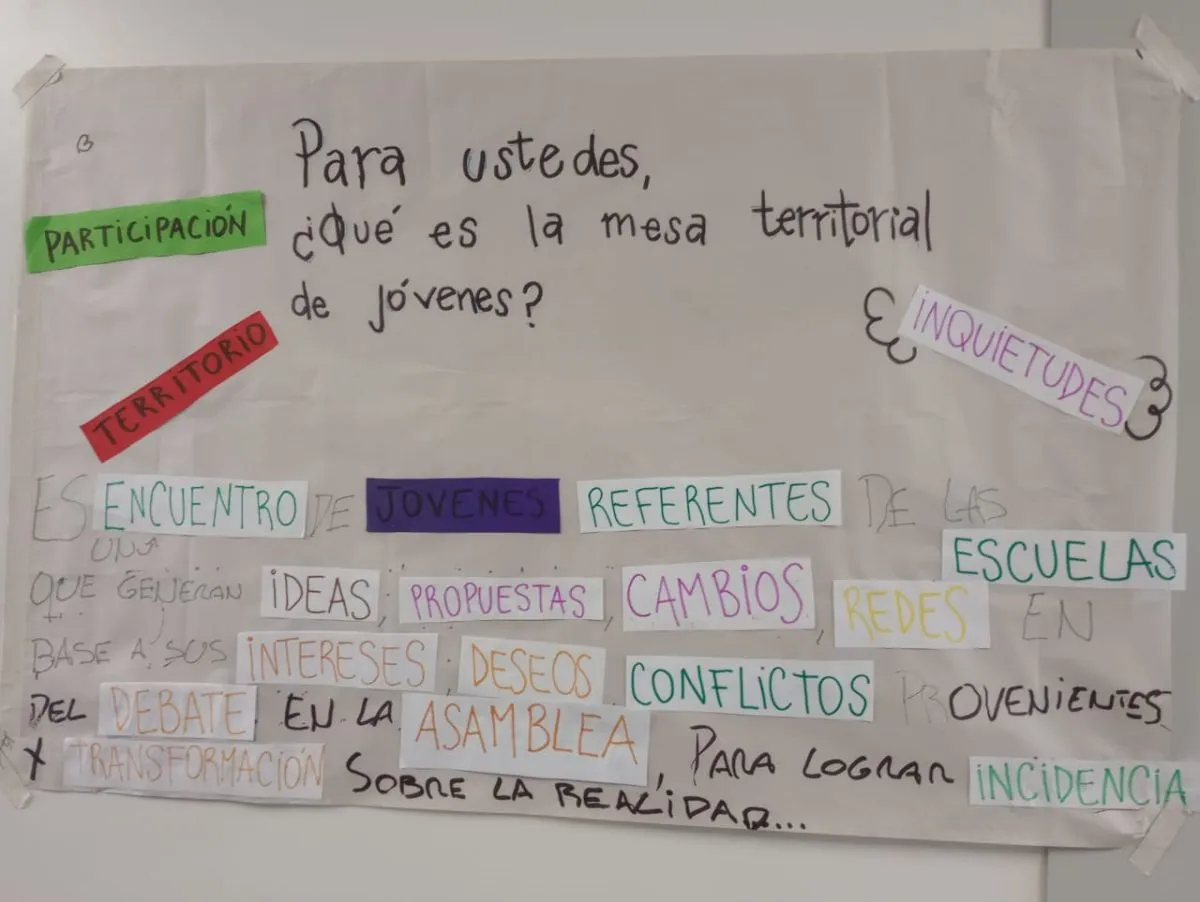 Para ustedes,
PARTICIPACIÓN
¿Qué es la mesa territorial
de jóvenes?
INQUIETUDES
TERRITORIO
ES ENCUENTRO DE JOVENES REFERENTES DE LAS
UNA
ESCUELAS
QUE GENERAN IDEAS, PROPUESTAS, CAMBIOS, REDES EN
BASE A SUS INTERESES, DESEOS CONFLICTOS PROVENIENTES
DEL DEBATE EN LA ASAMBLEA, PARA LOGRAR INCIDENCIA
Y TRANSFORMACIÓN SOBRE LA REALIDAD...